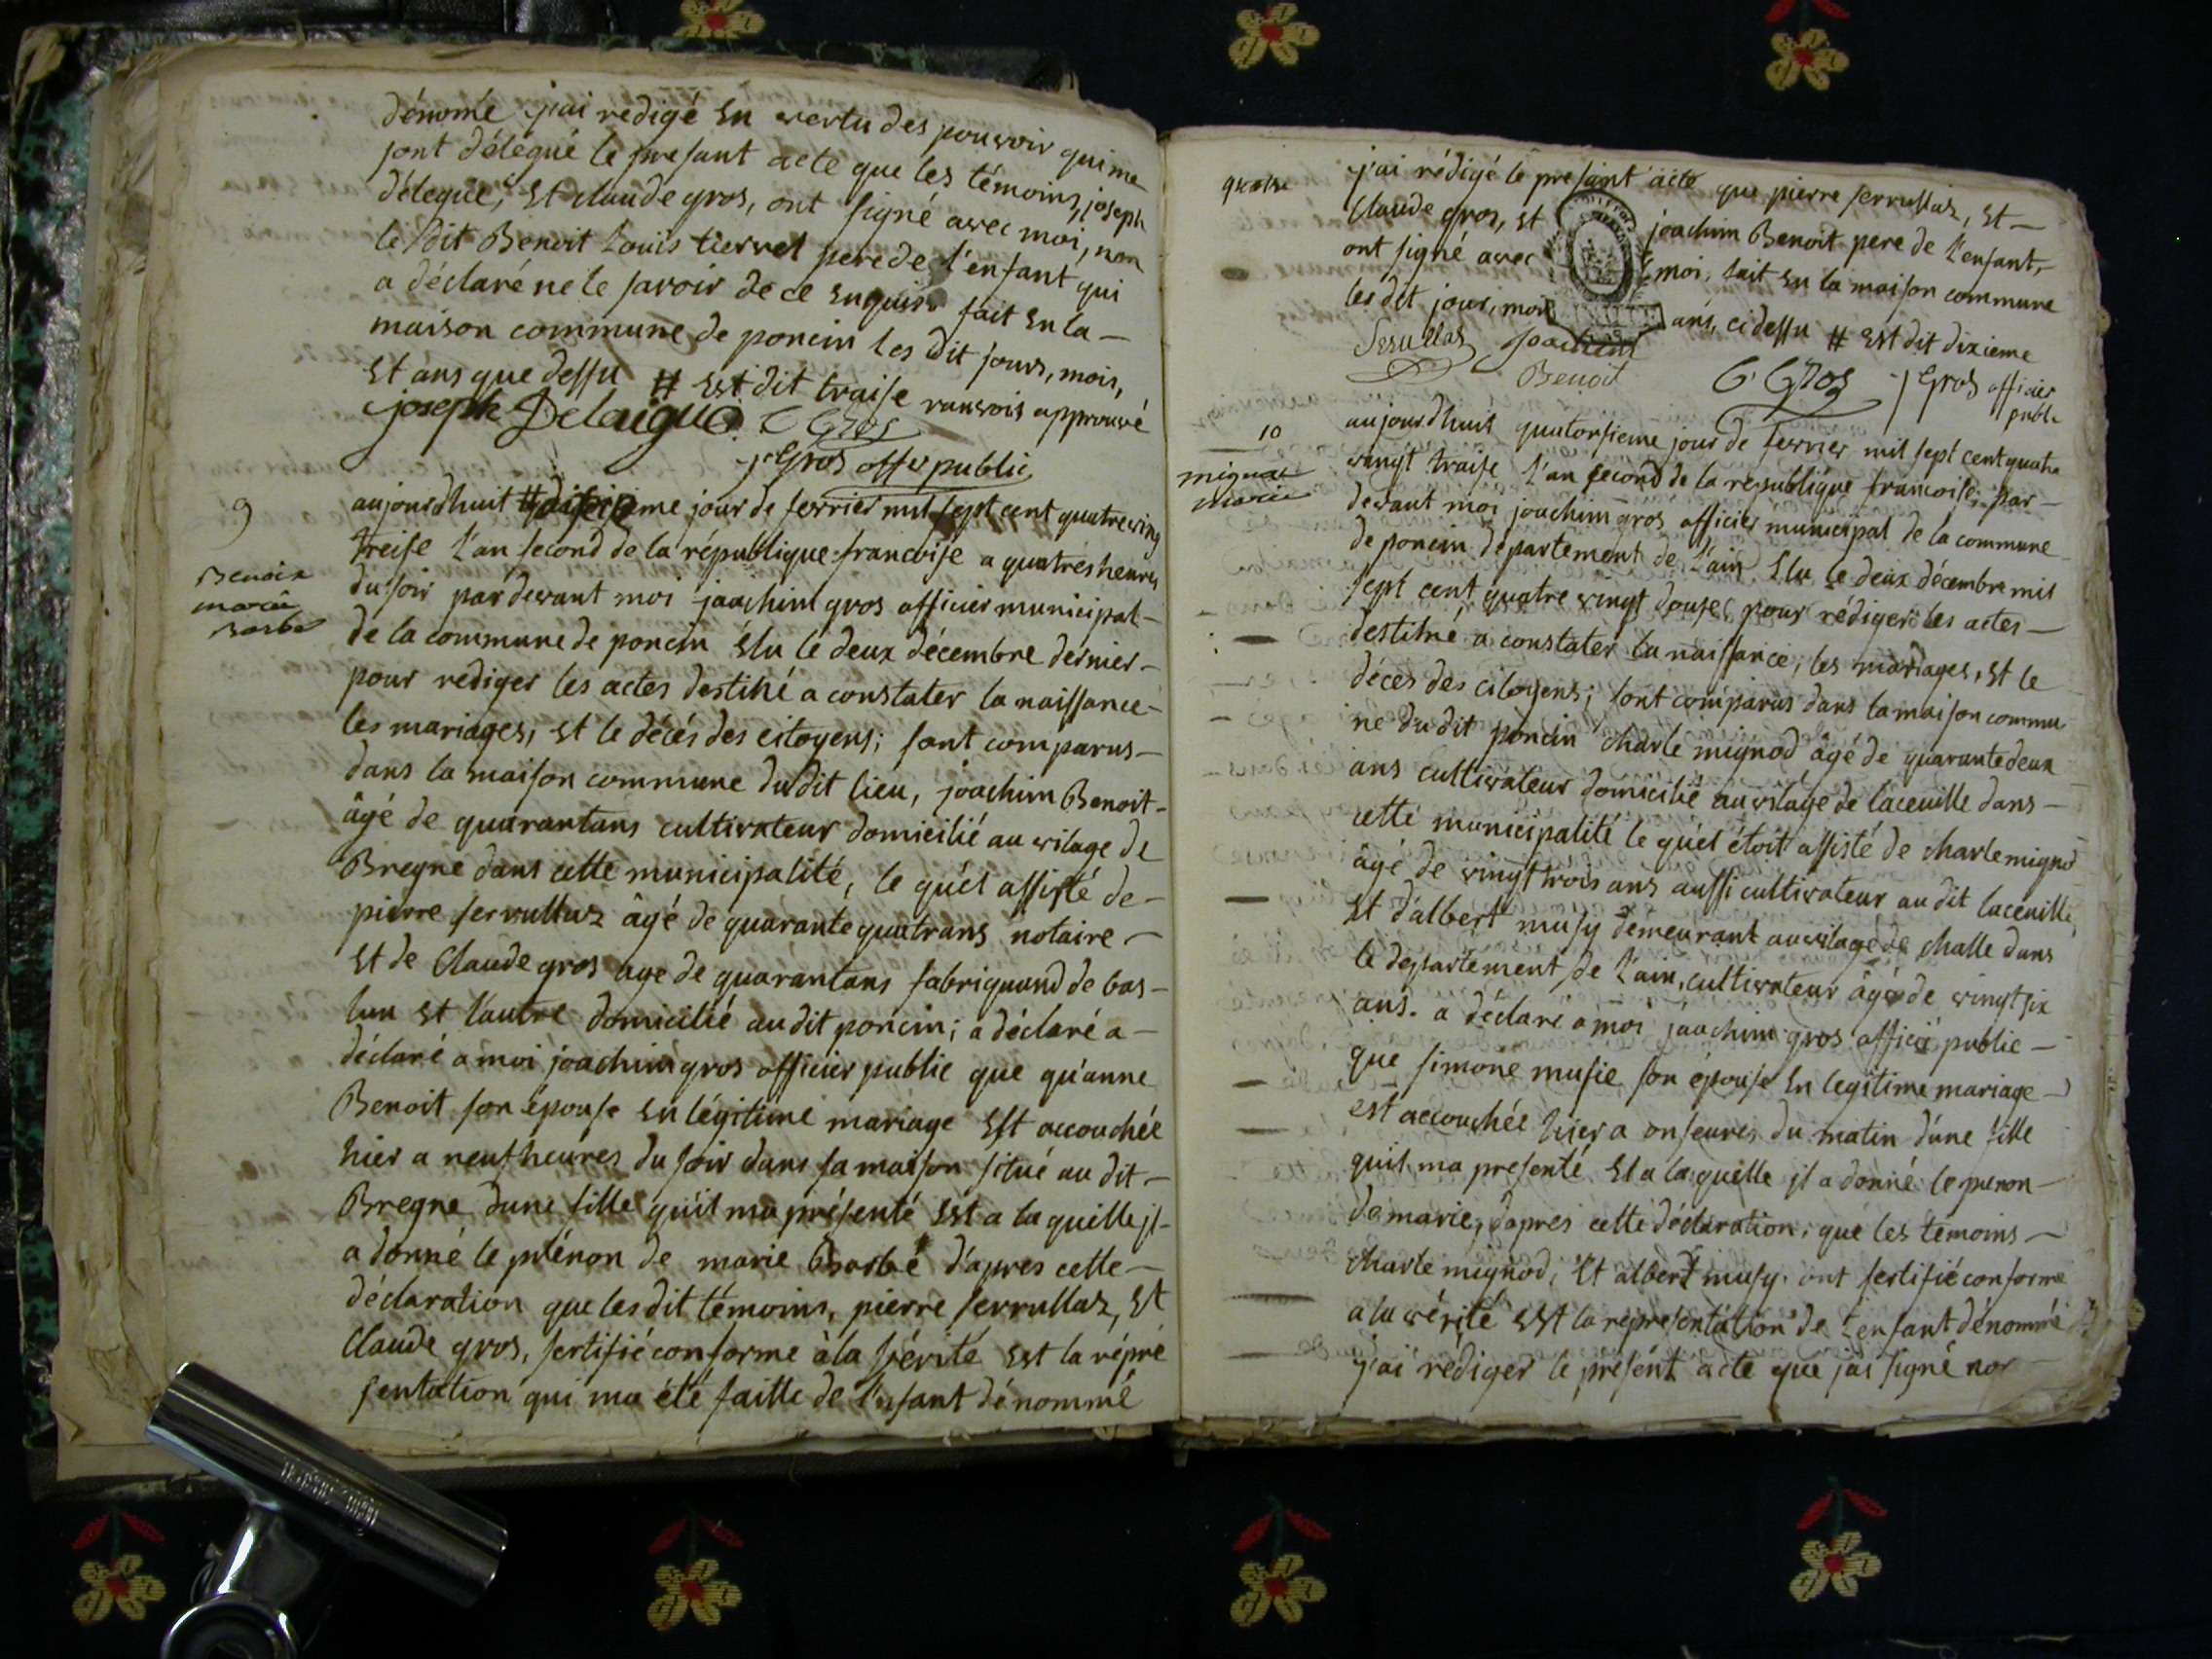 dénomé j'ai redigé En vertu des pouvoir qui me
sont délegué le presant acte que les témoins, joseph
délegue, Et claude gros, ont signé avec moi, non
le dit Benoit Louis tierret pere de l'enfant qui
a déclaré ne le savoir de ce Enquis. fait En la —
maison commune de poncin les dit jours, mois,
Et ans que dessu # Est dit traise ranvois approuvé
joseph Delaigue C Gros
j Gros offer public
9
Benoix
marie
Barbe
aujourdhuit # dixieme jour de ferrier mil sept cent quatreving
treise L'an second de la république francoise a quatres heures
du soir par devant moi joachim gros officier municipal —
de la commune de poncin Élu le deux décembre dernier —
pour rediger les actes destiné a constater la naissance —
les mariages, Et le décés des citoyens; sont comparus —
dans la maison commune du dit lieu, joachim Benoit —
âgé de quarantans cultivateur domicilié au vilage de
Bregne dans cette municipalité, le quel assisté de —
pierre serrullaz âgé de quarante quatrans notaire —
Et de Claude gros age de quarantans fabriquand de bas —
lun Et l'autre domicilié au dit poncin; a déclaré a —
déclaré a moi joachim gros officier public que qu'anne
Benoit son épouse En légitime mariage Est accouchée
hier a neuf heures du soir dans sa maison situé au dit —
Bregne dune fille qu'il ma présenté Est a la quelle jl —
a donné le plénon de marie Barbé d'apres cette —
déclaration que les dit témoins, pierre serrullaz, Et
Claude gros, sertifié conforme à la vérité Est la répré
sentation qui ma été faitte de l'enfant dénommé
j'ai rédigé le presant acte que pierre serrullaz, Et —
Claude gros, Et joachim Benoit pere de L'enfant,
ont signé avec moi, fait En la maison commune
les dit jour, mois ans, ci dessu # Est dit dixieme
Serullas joachim Benoit C Gros j Gros officier public
10
mignod
marie
aujourdhuit quatorsieme jour de ferrier mil sept cent quatre
vingt traise L'an second de la republique francoise, par —
devant moi joachim gros officier municipal de la commune
de poncin departement de L'ain Elu le deux décembre mil
sept cent quatre vingt douse, pour rédiger les actes —
destiné a constater la naissance, les mariages, Et le
décés des citoyens; sont comparus dans la maison commu
ne du dit poncin charle mignod âgé de quarante deux
ans cultivateur domicilié au vilage de laceuille dans —
cette municipalité le quel étoit assisté de charle mignod
âgé de vingt trois ans aussi cultivateur au dit laceuille,
Et d'albert musy demeurant au vilage de challe dans
le departement de L'ain, cultivateur âgé de vingt six
ans. a déclaré a moi joachim gros officié public —
que simone musie son épouse En legitime mariage —
est accouchée hier a onseures du matin d'une fille
quil ma presenté Et a la quelle jl a donné le prenon —
de marie, dapres cette déclaration, que les temoins —
charle mignod, Et albert musy. ont sertifié conforme
a la vérité Est la representation de Lenfant dénommé
j'ai rediger le présent acte que jai signé non